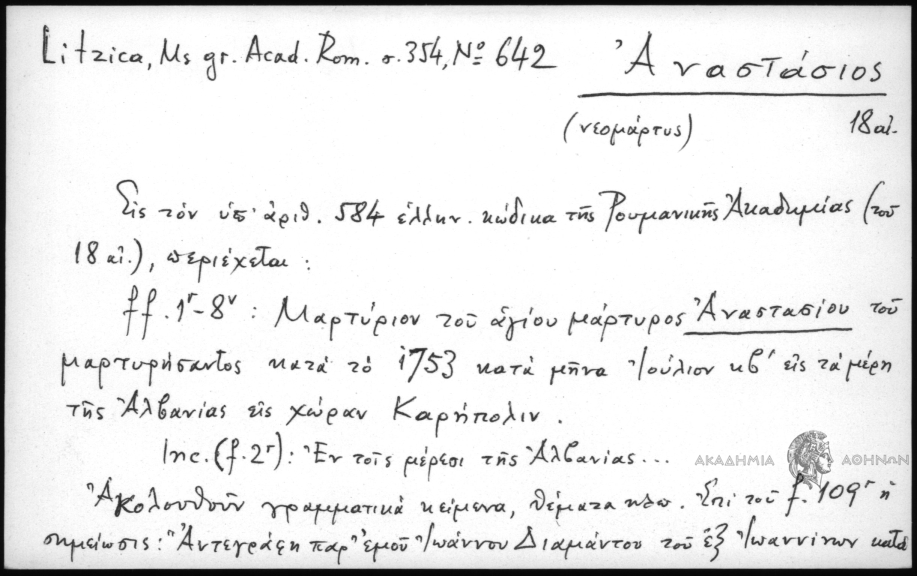 Litzica, Ms gr. Acad. Rom. σ. 354, Nº 642
Ἀναστάσιος
(νεομάρτυς)
18 αἰ.
Εἰς τὸν ὑπ' ἀριθ. 584 ἑλλην. κώδικα τῆς Ρουμανικῆς Ἀκαδημίας (τοῦ
18 αἰ.), περιέχεται :
ff. 1r - 8v : Μαρτύριον τοῦ ἁγίου μάρτυρος Ἀναστασίου τοῦ
μαρτυρήσαντος κατὰ τὸ 1753 κατὰ μῆνα Ἰούλιον κβ' εἰς τὰ μέρη
τῆς Ἀλβανίας εἰς χώραν Καρήπολιν .
Inc. (f. 2r) : Ἐν τοῖς μέρεσι τῆς Ἀλβανίας ...
ΑΚΑΔΗΜΙΑ ΑΘΗΝΩΝ
Ἀκολουθοῦν γραμματικὰ κείμενα, θέματα κλπ. Ἐπὶ τοῦ f. 109r ἡ
σημείωσις : "Ἀντεγράφη παρ' ἐμοῦ Ἰωάννου Διαμάντου τοῦ ἐξ Ἰωαννίνων κατὰ